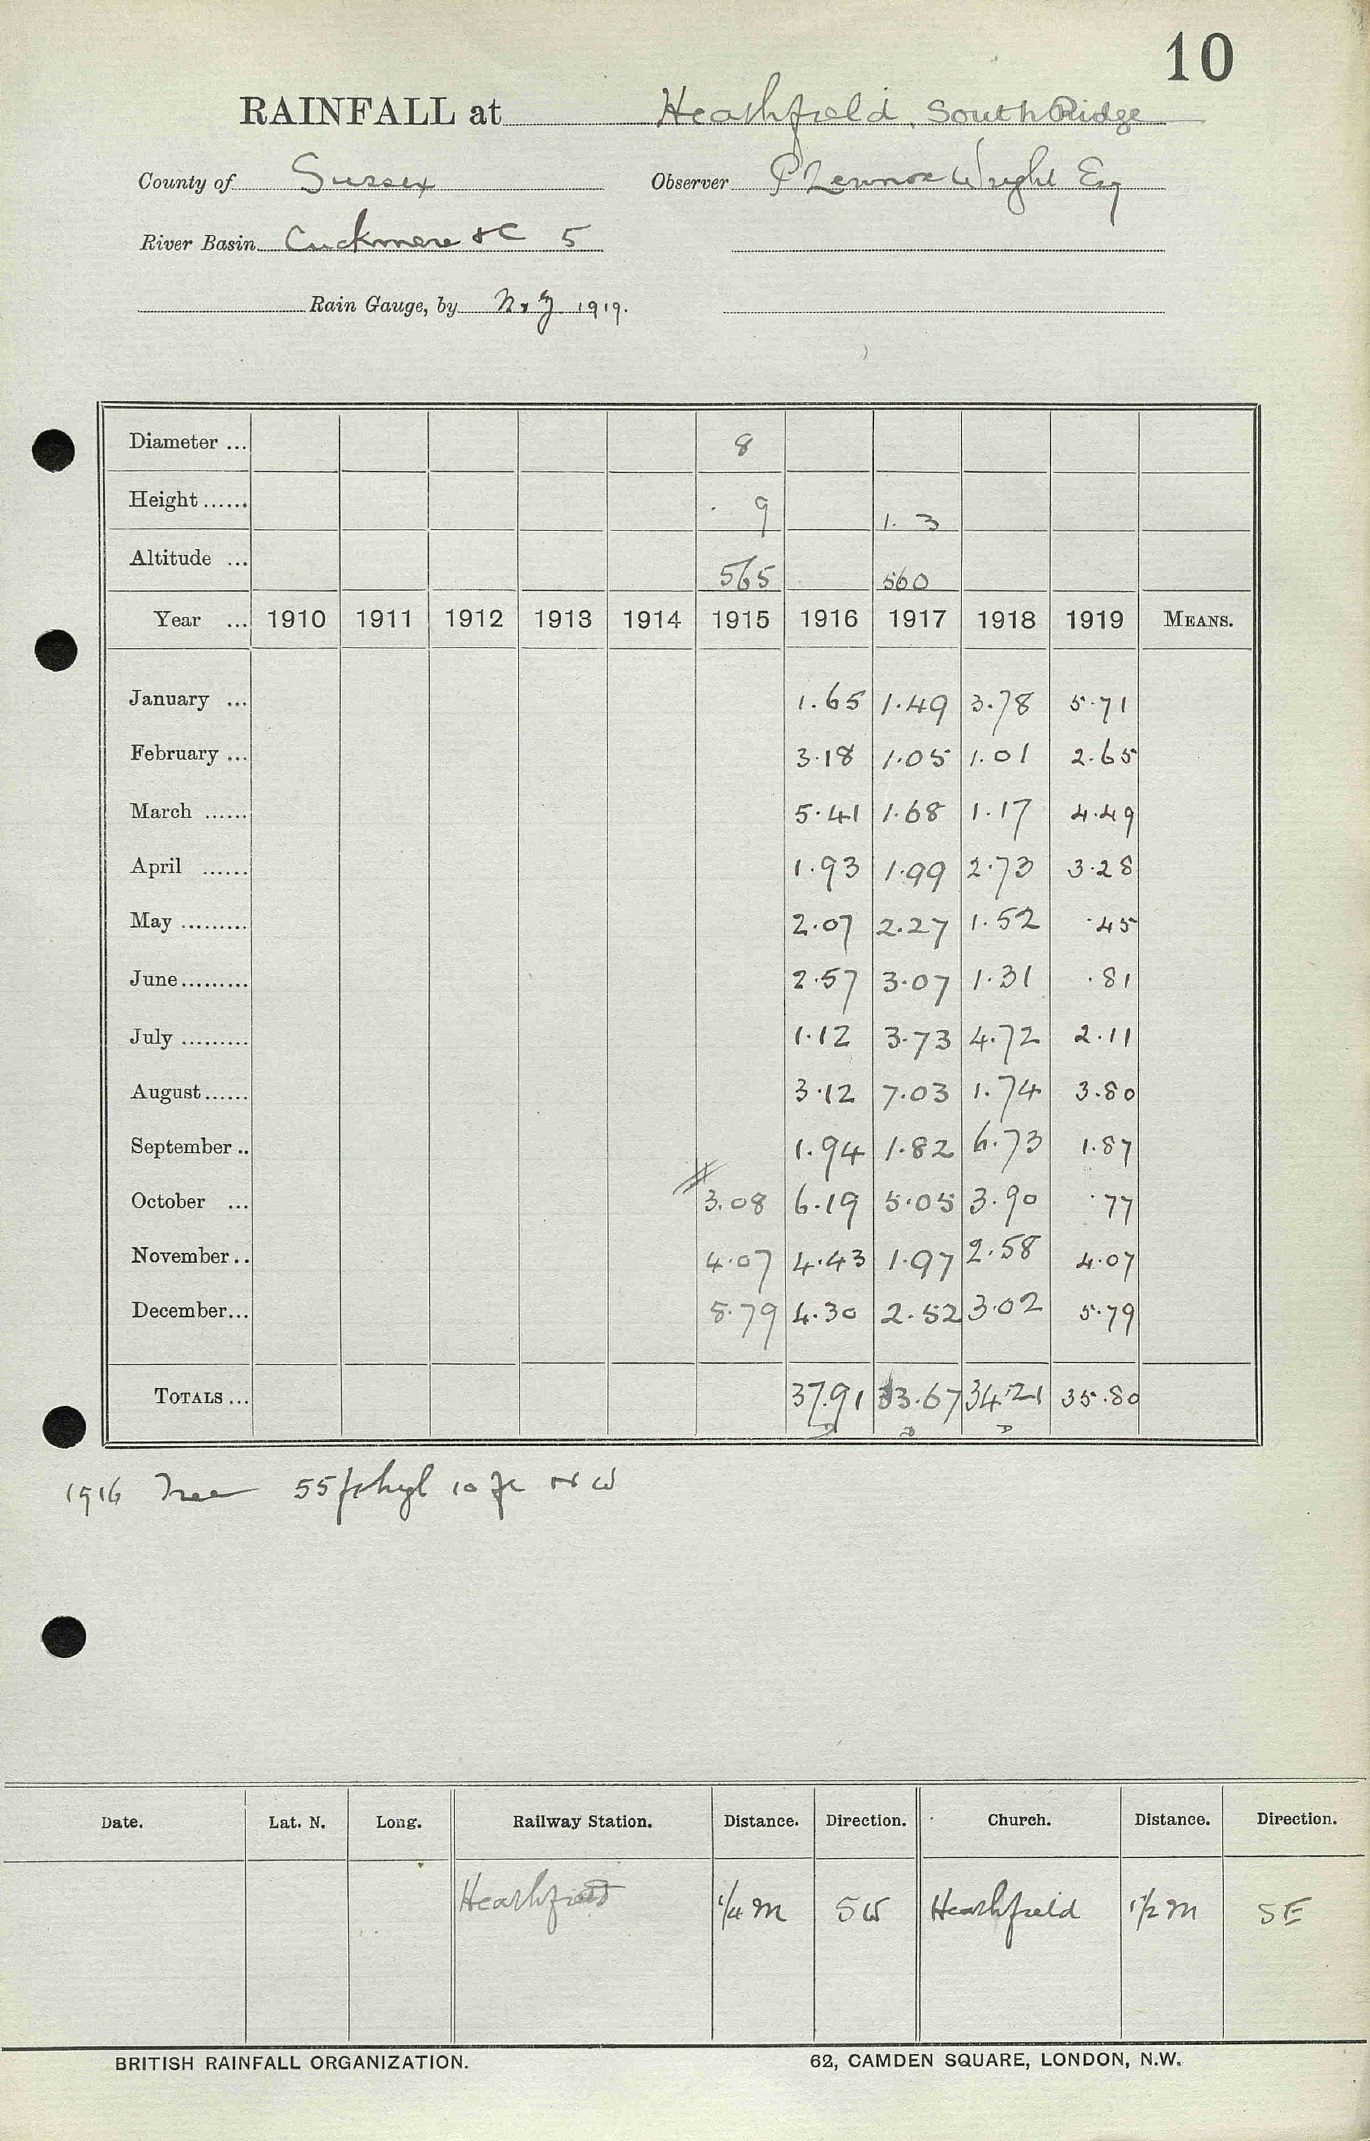 10
RAINFALL at Heathfield, South Ridge
County of Sussex Observer P Lennox Wright Esq
River Basin Cuckmere &c 5
Rain Gauge, by N & Z 1919.
Diameter ... 8
Height ...... . 9 1. 3
Altitude ... 565 560
Year ... 1910 1911 1912 1913 1914 1915 1916 1917 1918 1919 MEANS.
January ... 1.65 1.49 3.78 5.71
February ... 3.18 1.05 1.01 2.65
March ...... 5.41 1.68 1.17 4.49
April ...... 1.93 1.99 2.73 3.28
May ......... 2.07 2.27 1.52 .45
June ......... 2.57 3.07 1.31 .81
July ......... 1.12 3.73 4.72 2.11
August ...... 3.12 7.03 1.74 3.80
September .. 1.94 1.82 6.73 1.87
October ... 3.08 6.19 5.05 3.90 .77
November .. 4.07 4.43 1.97 2.58 4.07
December ... 8.79 4.30 2.52 3.02 5.79
TOTALS ... 37.91 33.67 34.21 35.80
D D D
1916 Tree 55 ft high 10 ft N W
Date. Lat. N. Long. Railway Station. Distance. Direction. Church. Distance. Direction.
Heathfield 1/4 m SW Heathfield 1 1/2 m SE
BRITISH RAINFALL ORGANIZATION. 62, CAMDEN SQUARE, LONDON, N.W.